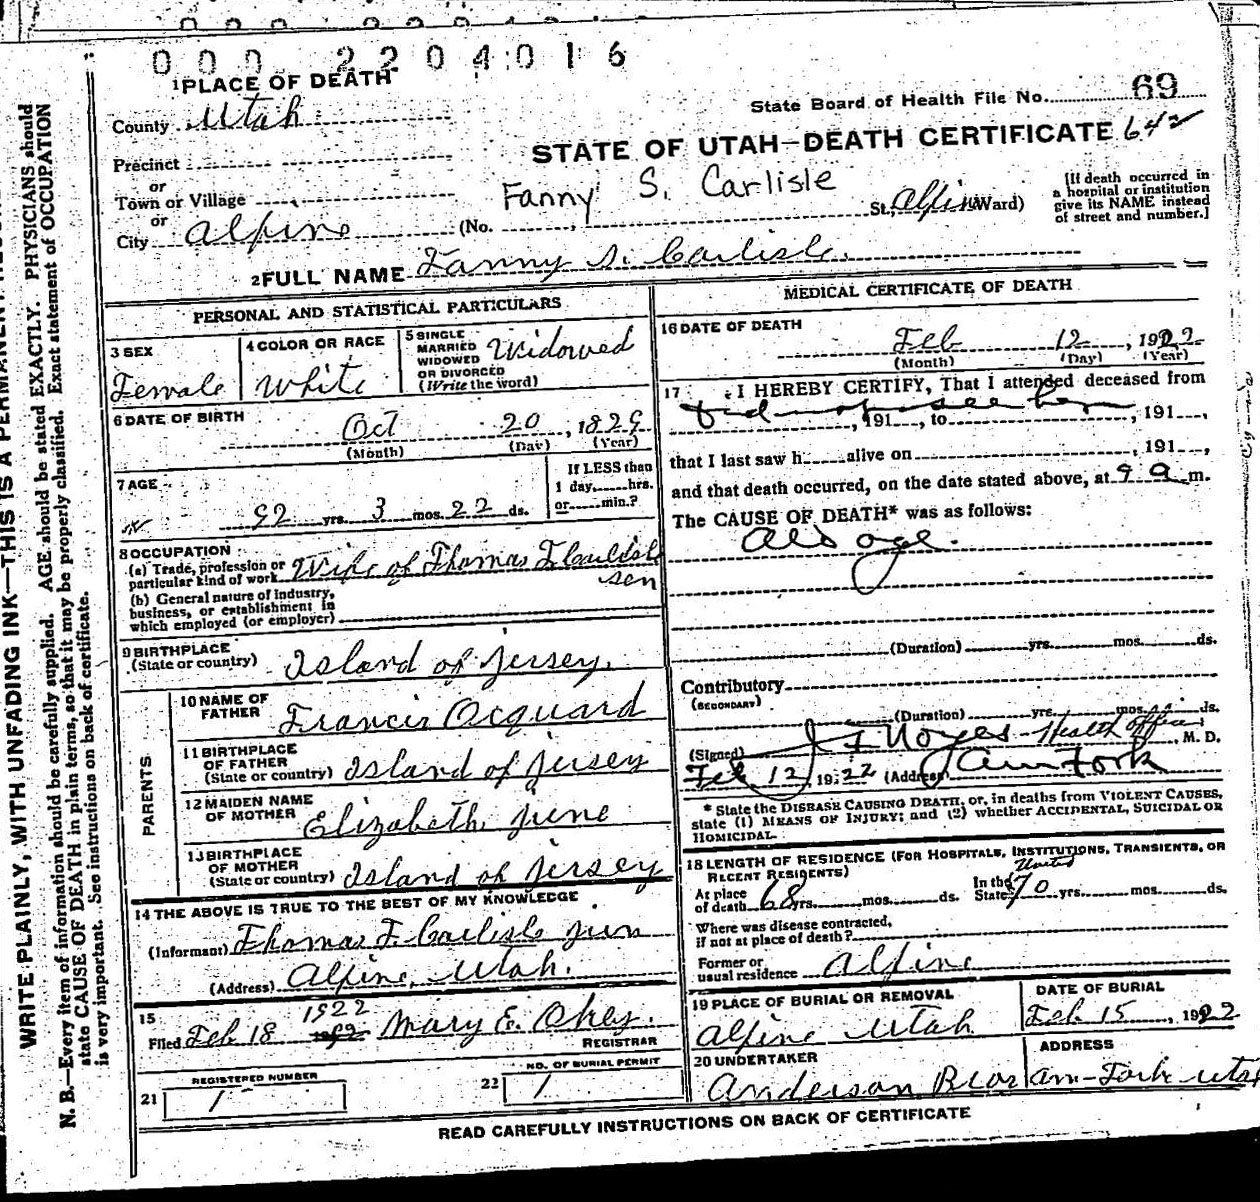 0 0 0 2 2 0 4 0 1 6
1 PLACE OF DEATH
State Board of Health File No. 69
County Utah
STATE OF UTAH—DEATH CERTIFICATE 642
Precinct
or
Town or Village
or
Fanny S. Carlisle
City Alpine (No. , St., Alpine Ward)
[If death occurred in
a hospital or institution
give its NAME instead
of street and number.]
2 FULL NAME Fanny S. Carlisle.
PERSONAL AND STATISTICAL PARTICULARS
3 SEX
Female
4 COLOR OR RACE
White
5 SINGLE
MARRIED
WIDOWED
OR DIVORCED
(Write the word)
Widowed
6 DATE OF BIRTH
Oct 20, 1829
(Month) (Day) (Year)
7 AGE
92 yrs. 3 mos. 22 ds.
If LESS than
1 day, hrs.
or min.?
8 OCCUPATION
(a) Trade, profession or
particular kind of work Wife of Thomas F Carlisle
sen
(b) General nature of industry,
business, or establishment in
which employed (or employer)
9 BIRTHPLACE
(State or country) Island of Jersey.
PARENTS
10 NAME OF
FATHER Francis Ocquard
11 BIRTHPLACE
OF FATHER
(State or country) Island of Jersey
12 MAIDEN NAME
OF MOTHER Elizabeth June
13 BIRTHPLACE
OF MOTHER
(State or country) Island of Jersey
14 THE ABOVE IS TRUE TO THE BEST OF MY KNOWLEDGE
(Informant) Thomas F. Carlisle Jun
(Address) Alpine, Utah.
15
1922
Filed Feb 18 Mary E. Okey.
REGISTRAR
REGISTERED NUMBER
21 1
NO. OF BURIAL PERMIT
22 1
MEDICAL CERTIFICATE OF DEATH
16 DATE OF DEATH
Feb 12, 1922
(Month) (Day) (Year)
17 I HEREBY CERTIFY, That I attended deceased from
did not see her
, 191 , to , 191 ,
that I last saw h alive on , 191 ,
and that death occurred, on the date stated above, at 9 a m.
The CAUSE OF DEATH* was as follows:
Old age.
(Duration) yrs. mos. ds.
Contributory
(SECONDARY)
(Duration) yrs. mos. ds.
(Signed) J F Noyes Health Officer, M. D.
Feb 12, 1922 (Address) Am Fork
* State the DISEASE CAUSING DEATH, or, in deaths from VIOLENT CAUSES,
state (1) MEANS OF INJURY; and (2) whether ACCIDENTAL, SUICIDAL OR
HOMICIDAL.
18 LENGTH OF RESIDENCE (FOR HOSPITALS, INSTITUTIONS, TRANSIENTS, OR
RECENT RESIDENTS)
United
At place
of death 68 yrs. mos. ds.
In the
State 70 yrs. mos. ds.
Where was disease contracted,
if not at place of death?
Former or
usual residence Alpine
19 PLACE OF BURIAL OR REMOVAL
Alpine Utah
DATE OF BURIAL
Feb 15, 1922
20 UNDERTAKER
Anderson Bros
ADDRESS
Am-Fork Utah
READ CAREFULLY INSTRUCTIONS ON BACK OF CERTIFICATE
WRITE PLAINLY, WITH UNFADING INK—THIS IS A PERMANENT
N. B.—Every item of information should be carefully supplied. AGE should be stated EXACTLY. PHYSICIANS should
state CAUSE OF DEATH in plain terms, so that it may be properly classified. Exact statement of OCCUPATION
is very important. See instructions on back of certificate.